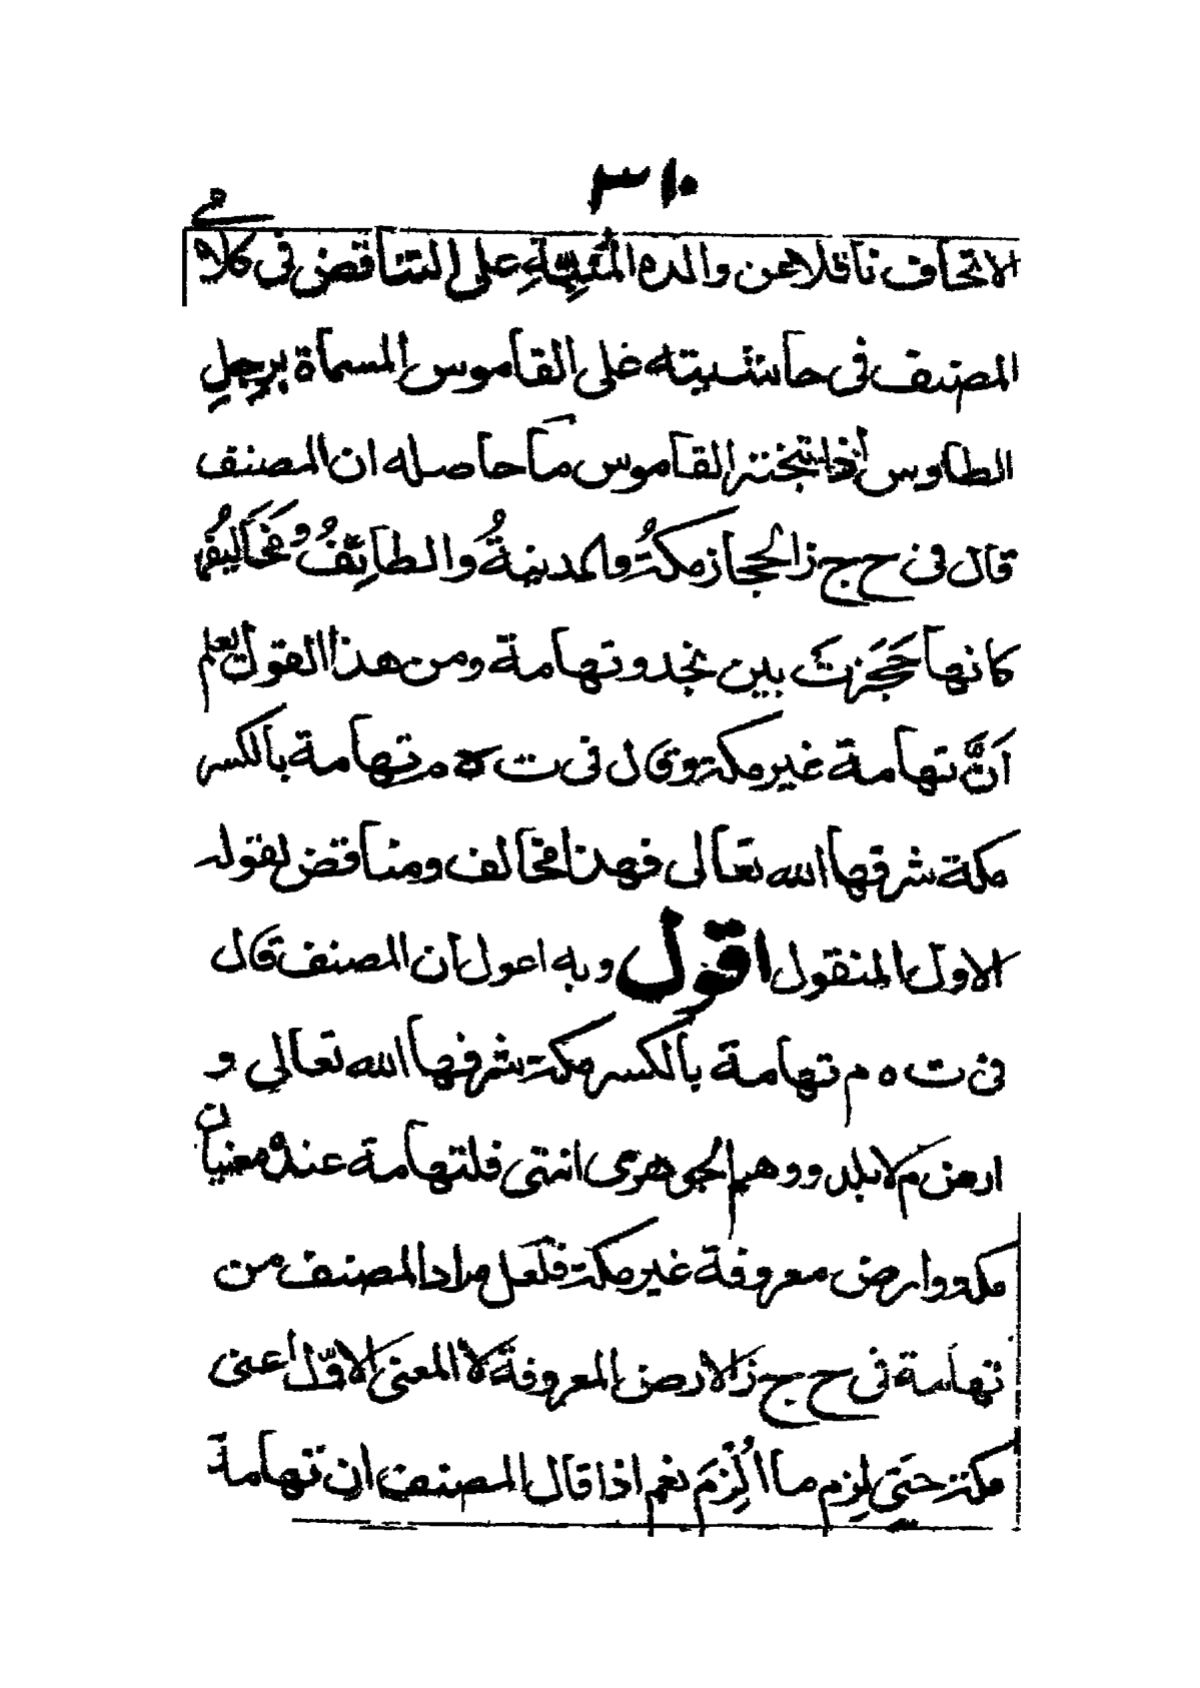 ٣١٠
الاتحاف ناقلا عن والده المُنَبِّهِ على التناقض في كلام
المصنف في حاشيته على القاموس المسماة برِجلِ
الطاوس اذا تبختر القاموس مَا حاصله ان المصنف
قال في ح ج ز الحجاز مكةُ والمدينةُ والطائِفُ ومَخَاليفُها
كانها حَجَزتَ بين نجد وتهامة ومن هذا القول يعلم
اَنَّ تهامة غير مكة وقال في ت ه م تهامة بالكسر
مكة شرفها الله تعالى فهذا مخالف ومناقض لقوله
الاول المنقول اقول وبه اعول ان المصنف قال
في ت ه م تهامة بالكسر مكة شرفها الله تعالى و
ارض م لا بلد ووهم الجوهرى انتهى فلتهامة عنده معنيان
مكة وارض معروفة غير مكة فلعل مراد المصنف من
تهامة في ح ج ز الارض المعروفة لا المعنى الاوّل اعنى
مكة حتى لزم ما اُلْزِمَ نعم اذا قال المصنف ان تهامة